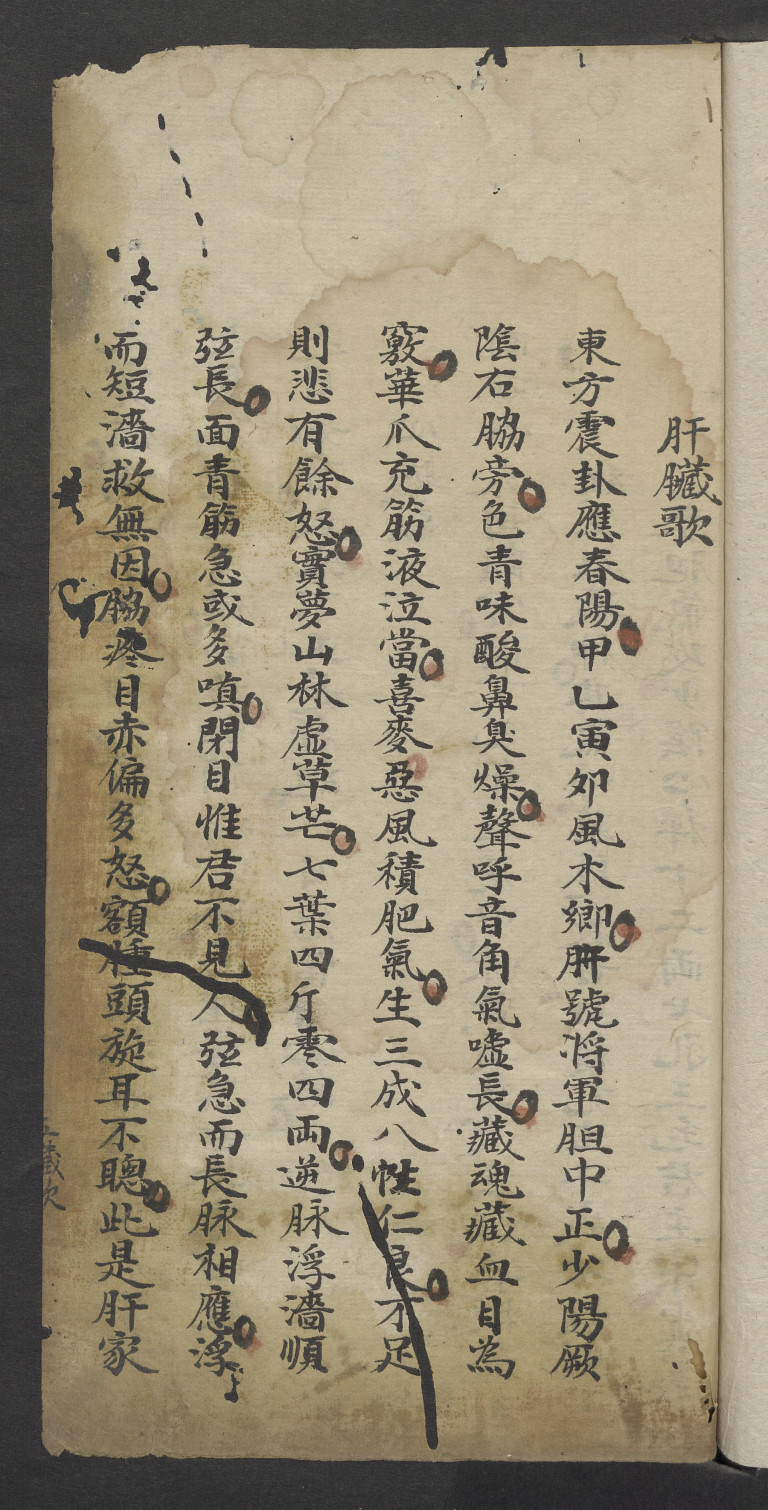 肝臟歌
東方震卦應春陽甲乙寅夘風木鄉肝號將軍胆中正少陽厥
隂右脇旁色青味酸鼻臭燥聲呼音角氣噓長藏魂藏血目為
竅華爪充筋液泣當喜麥惡風積肥氣生三成八性仁良不足
則悲有餘怒實夢山林虛草芒七葉四斤零四両逆脉浮濇順
弦長面青筋急或多嗔閉目惟君不見人弦急而長脉相應浮
而短濇救無因脇疼目赤偏多怒額腫頭旋耳不聰此是肝家
五臟歌